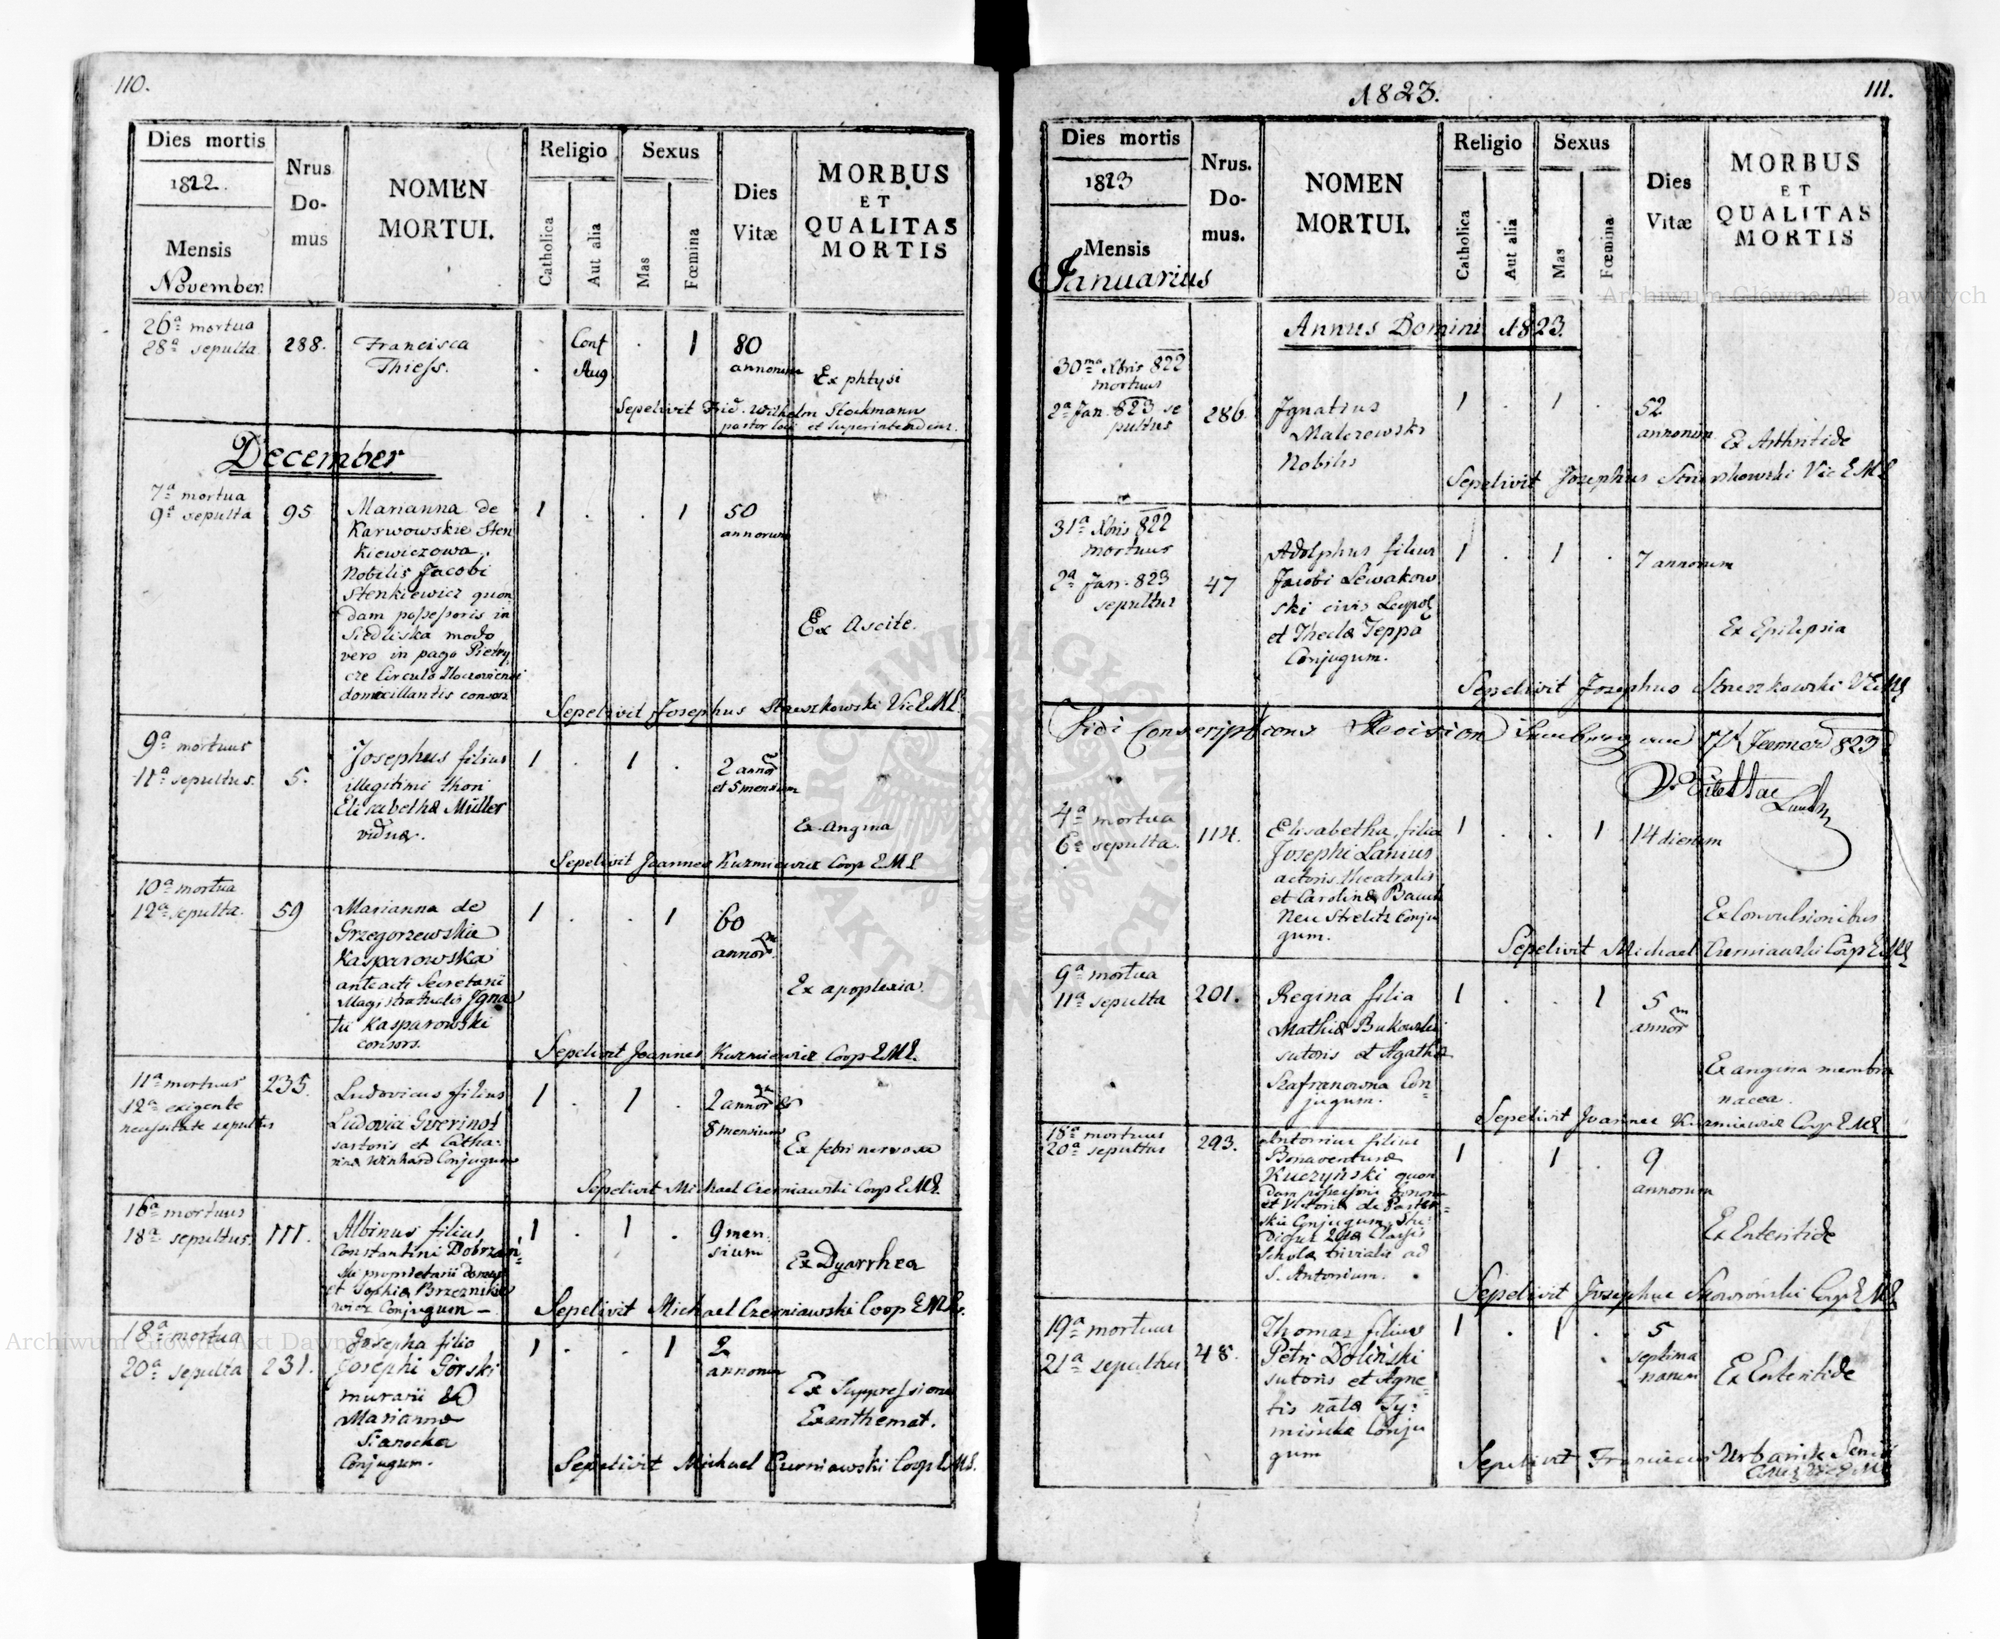 110.
Dies mortis
1822.
Mensis
November.
Nrus
Do-
mus
NOMEN
MORTUI.
Religio
Catholica
Aut alia
Sexus
Mas
Fœmina
Dies
Vitæ
MORBUS
ET
QUALITAS
MORTIS
26ª mortua
28ª sepulta
288.
Francisca
Thiess.
Conf
Aug
1
80
annorum
Ex phtysi
Sepelivit Frid. Wilhelm Stockmann
pastor loci et Superintendens.
December
7ª mortua
9ª sepulta
95
Marianna de
Karwowskie Sten
kiewiczowa,
Nobilis Jacobi
Stenkiewicz quon
dam possessoris in
Siedliska modo
vero in pago Pietry
cze Circulo Zloczoviensi
domicillantis consors
1 . . 1
50
annorum
Ex Ascite.
Sepelivit Josephus Streszkowski Vic E.M.L.
9ª mortuus
11ª sepultus.
5.
Josephus filius
illegitimi thori
Elisabethæ Müller
viduæ.
1 . 1 .
2 annor
et 5 mensium
Ex Angina
Sepelivit Joannes Kuzmiewicz Coop E M L
10ª mortua
12ª sepulta.
59
Marianna de
Grzegorzewskie
Kasparowska
anteacti Secretarii
Magistratualis Igna
tii Kasparowski
consors.
1 . . 1
60
annor
Ex apoplexia.
Sepelivit Joannes Kuzmiewicz Coop E.M.L.
11ª mortuus
12ª exigente
necessitate sepultus
235.
Ludovicus filius
Ludovici
sartoris et Catha-
rinæ Winhard Conjugum
1 . 1 .
2 annor &
8 mensium
Ex febri nervosa
Sepelivit Michael Czerniawski Coop E.M.L.
16ª mortuus
18ª sepultus.
111.
Albinus filius
Constantini Dobrzań-
ski proprietarii domus
et Sophiæ Brzeznikie
wicz Conjugum —
1 . 1 .
9 men.
sium
Ex Dyarrhea
Sepelivit Michael Czerniawski Coop E M L.
18ª mortua
20ª sepulta
231.
Josepha filia
Josephi Górski
murarii &
Mariannæ
Conjugum.
1 . . 1
2
annorum
Ex Suppressione
Exanthemat.
Sepelivit Michael Czerniawski Coop E.M.L.
1823.
111.
Dies mortis
1823
Mensis
Januarius
Nrus.
Do-
mus.
NOMEN
MORTUI.
Religio
Catholica
Aut alia
Sexus
Mas
Fœmina
Dies
Vitæ
MORBUS
ET
QUALITAS
MORTIS
Annus Domini 1823.
30ma Xbris 822
mortuus
2ª Jan. 823 se
pultus
286
Ignatius
Malczowski
Nobilis
1 . 1 .
52
annorum
Ex Arthritide
Sepelivit Josephus Streszkowski Vic E M L
31ª Xbris 822
mortuus
2ª Jan. 823
sepultus
47
Adolphus filius
Jacobi Lewakow
ski civis Leopol
et Theclæ Teppa
Conjugum.
1 . 1 .
7 annorum
Ex Epilepsia
Sepelivit Josephus Streszkowski V E M L
Vidi Conscriptions Revision Lemberg am 17t Jenner 823
4ª mortua
6ª sepulta.
114.
Elisabetha filia
Josephi Lanius
actoris theatralis
et Carolinæ
Neu Strelitz Conju
gum.
1 . . 1
14 dierum
Ex Convulsionibus
Sepelivit Michael Czerniawski Coop E.M.L.
9ª mortua
11ª sepulta
201.
Regina filia
Mathiæ Bukowski
sutoris et Agathæ
Szafranowna Con-
jugum.
1 . . 1
5
annor
Ex angina membra
nacea.
Sepelivit Joannes Kuzmiewicz Coop E.M.L.
18ª mortuus
20ª sepultus
293.
Antonius filius
Bonaventuræ
Kuczyński quon
dam possessoris bonorum
et Victoriæ de
skie Conjugum, Stu-
diosus 2dæ Classis
Scholæ trivialis ad
S. Antonium.
1 . 1 .
9
annorum
Ex Enteritide
Sepelivit Josephus Skowroński Coop E.M.L.
19ª mortuus
21ª sepultus
48.
Thomas filius
Petri Doliński
sutoris et Agne-
tis natæ Ty-
mińska Conju
gum
1 . 1 .
5
septima
narum
Ex Enteritide
Sepelivit Franciscus Urbanik
Archiwum Główne Akt Dawnych
Archiwum Główne Akt Dawnych
ARCHIWUM GŁÓWNE AKT DAWNYCH